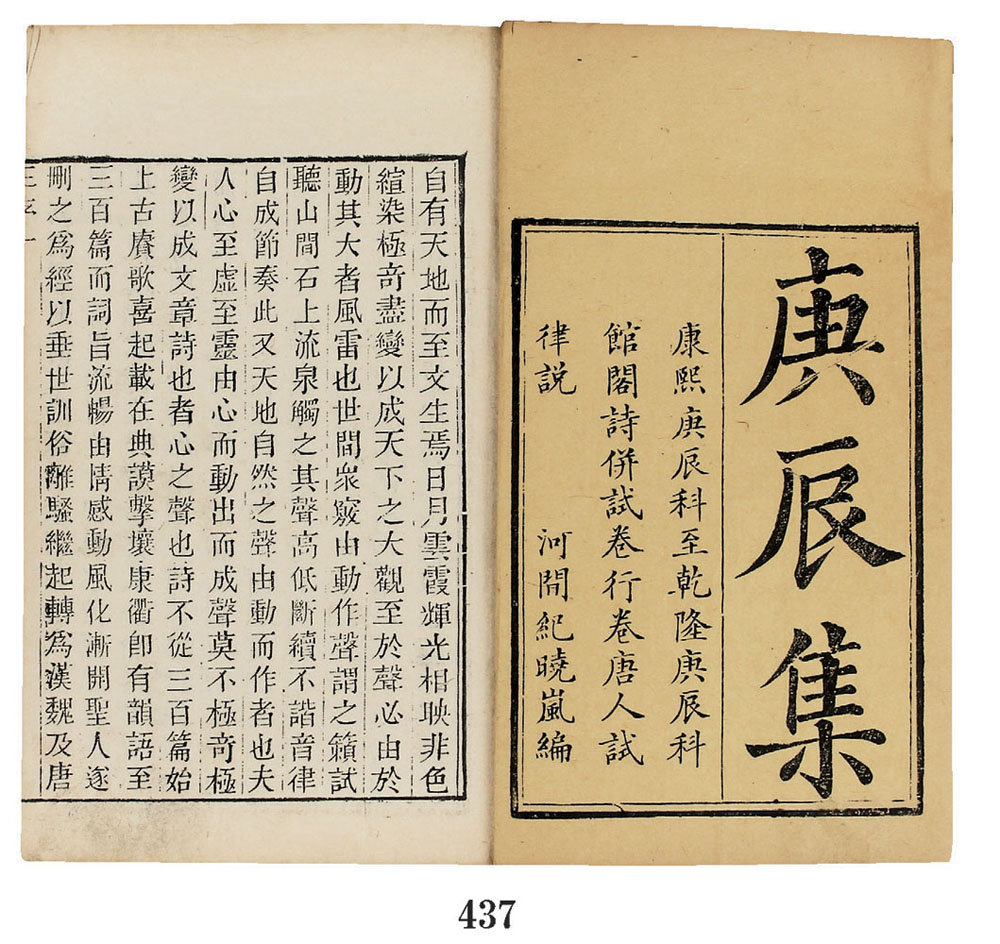 庚辰集
康熙庚辰科至乾隆庚辰科
館閣詩併試卷行卷唐人試
律説 河間紀曉嵐編
自有天地而至文生焉日月雲霞輝光相映非色
縇染極奇盡變以成天下之大觀至於聲必由於
動其大者風雷也世間衆竅由動作聲謂之籟試
聽山間石上流泉觸之其聲高低斷續不諧音律
自成節奏此又天地自然之聲由動而作者也夫
人心至虛至靈由心而動出而成聲莫不極奇極
變以成文章詩也者心之聲也詩不從三百篇始
上古賡歌喜起載在典謨擊壤康衢卽有韻語至
三百篇而詞旨流暢由情感動風化漸開聖人逐
刪之爲經以垂世訓俗離騷繼起轉爲漢魏及唐
437